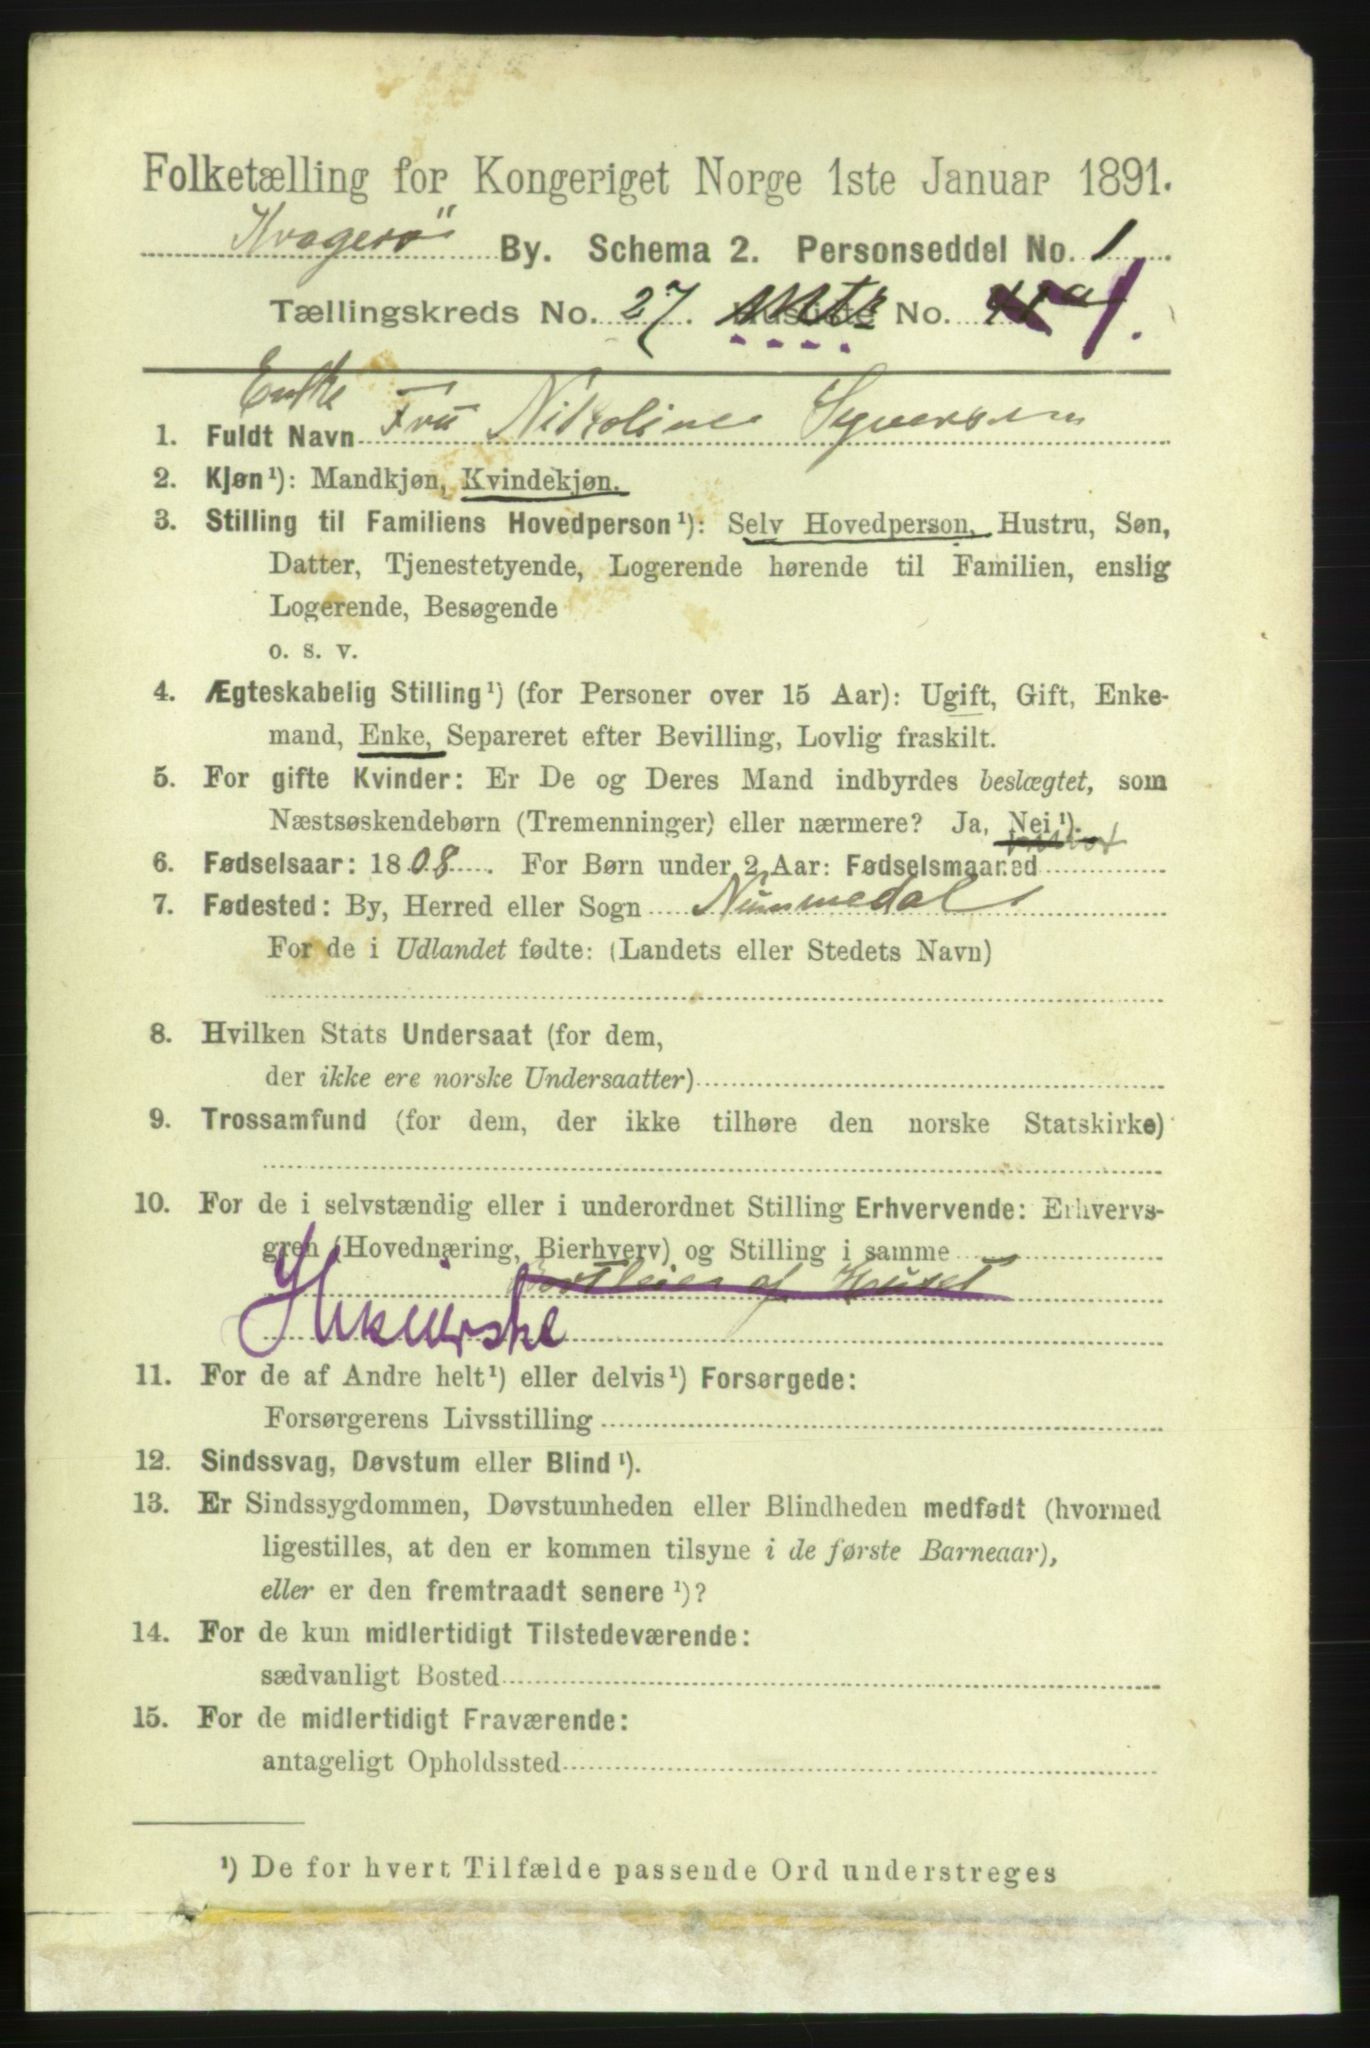 Folketælling for Kongeriget Norge 1ste Januar 1891.
Kragerø By. Schema 2. Personseddel No. 1
Tællingskreds No. 27. Mtr No. 1.
Enke
1. Fuldt Navn Fru Nikoline Syversen
2. Kjøn¹): Mandkjøn, Kvindekjøn.
3. Stilling til Familiens Hovedperson¹): Selv Hovedperson, Hustru, Søn,
Datter, Tjenestetyende, Logerende hørende til Familien, enslig
Logerende, Besøgende
o. s. v.
4. Ægteskabelig Stilling¹) (for Personer over 15 Aar): Ugift, Gift, Enke-
mand, Enke, Separeret efter Bevilling, Lovlig fraskilt.
5. For gifte Kvinder: Er De og Deres Mand indbyrdes beslægtet, som
Næstsøskendebørn (Tremenninger) eller nærmere? Ja, Nei¹).
6. Fødselsaar: 1808. For Børn under 2 Aar: Fødselsmaaned
7. Fødested: By, Herred eller Sogn Nummedal
For de i Udlandet fødte: (Landets eller Stedets Navn)
8. Hvilken Stats Undersaat (for dem,
der ikke ere norske Undersaatter)
9. Trossamfund (for dem, der ikke tilhøre den norske Statskirke)
10. For de i selvstændig eller i underordnet Stilling Erhvervende: Erhvervs-
gren (Hovednæring, Bierhverv) og Stilling i samme
Bortleier af Huset
Huseierske
11. For de af Andre helt¹) eller delvis¹) Forsørgede:
Forsørgerens Livsstilling
12. Sindssvag, Døvstum eller Blind¹).
13. Er Sindssygdommen, Døvstumheden eller Blindheden medfødt (hvormed
ligestilles, at den er kommen tilsyne i de første Barneaar),
eller er den fremtraadt senere¹)?
14. For de kun midlertidigt Tilstedeværende:
sædvanligt Bosted
15. For de midlertidigt Fraværende:
antageligt Opholdssted
¹) De for hvert Tilfælde passende Ord understreges